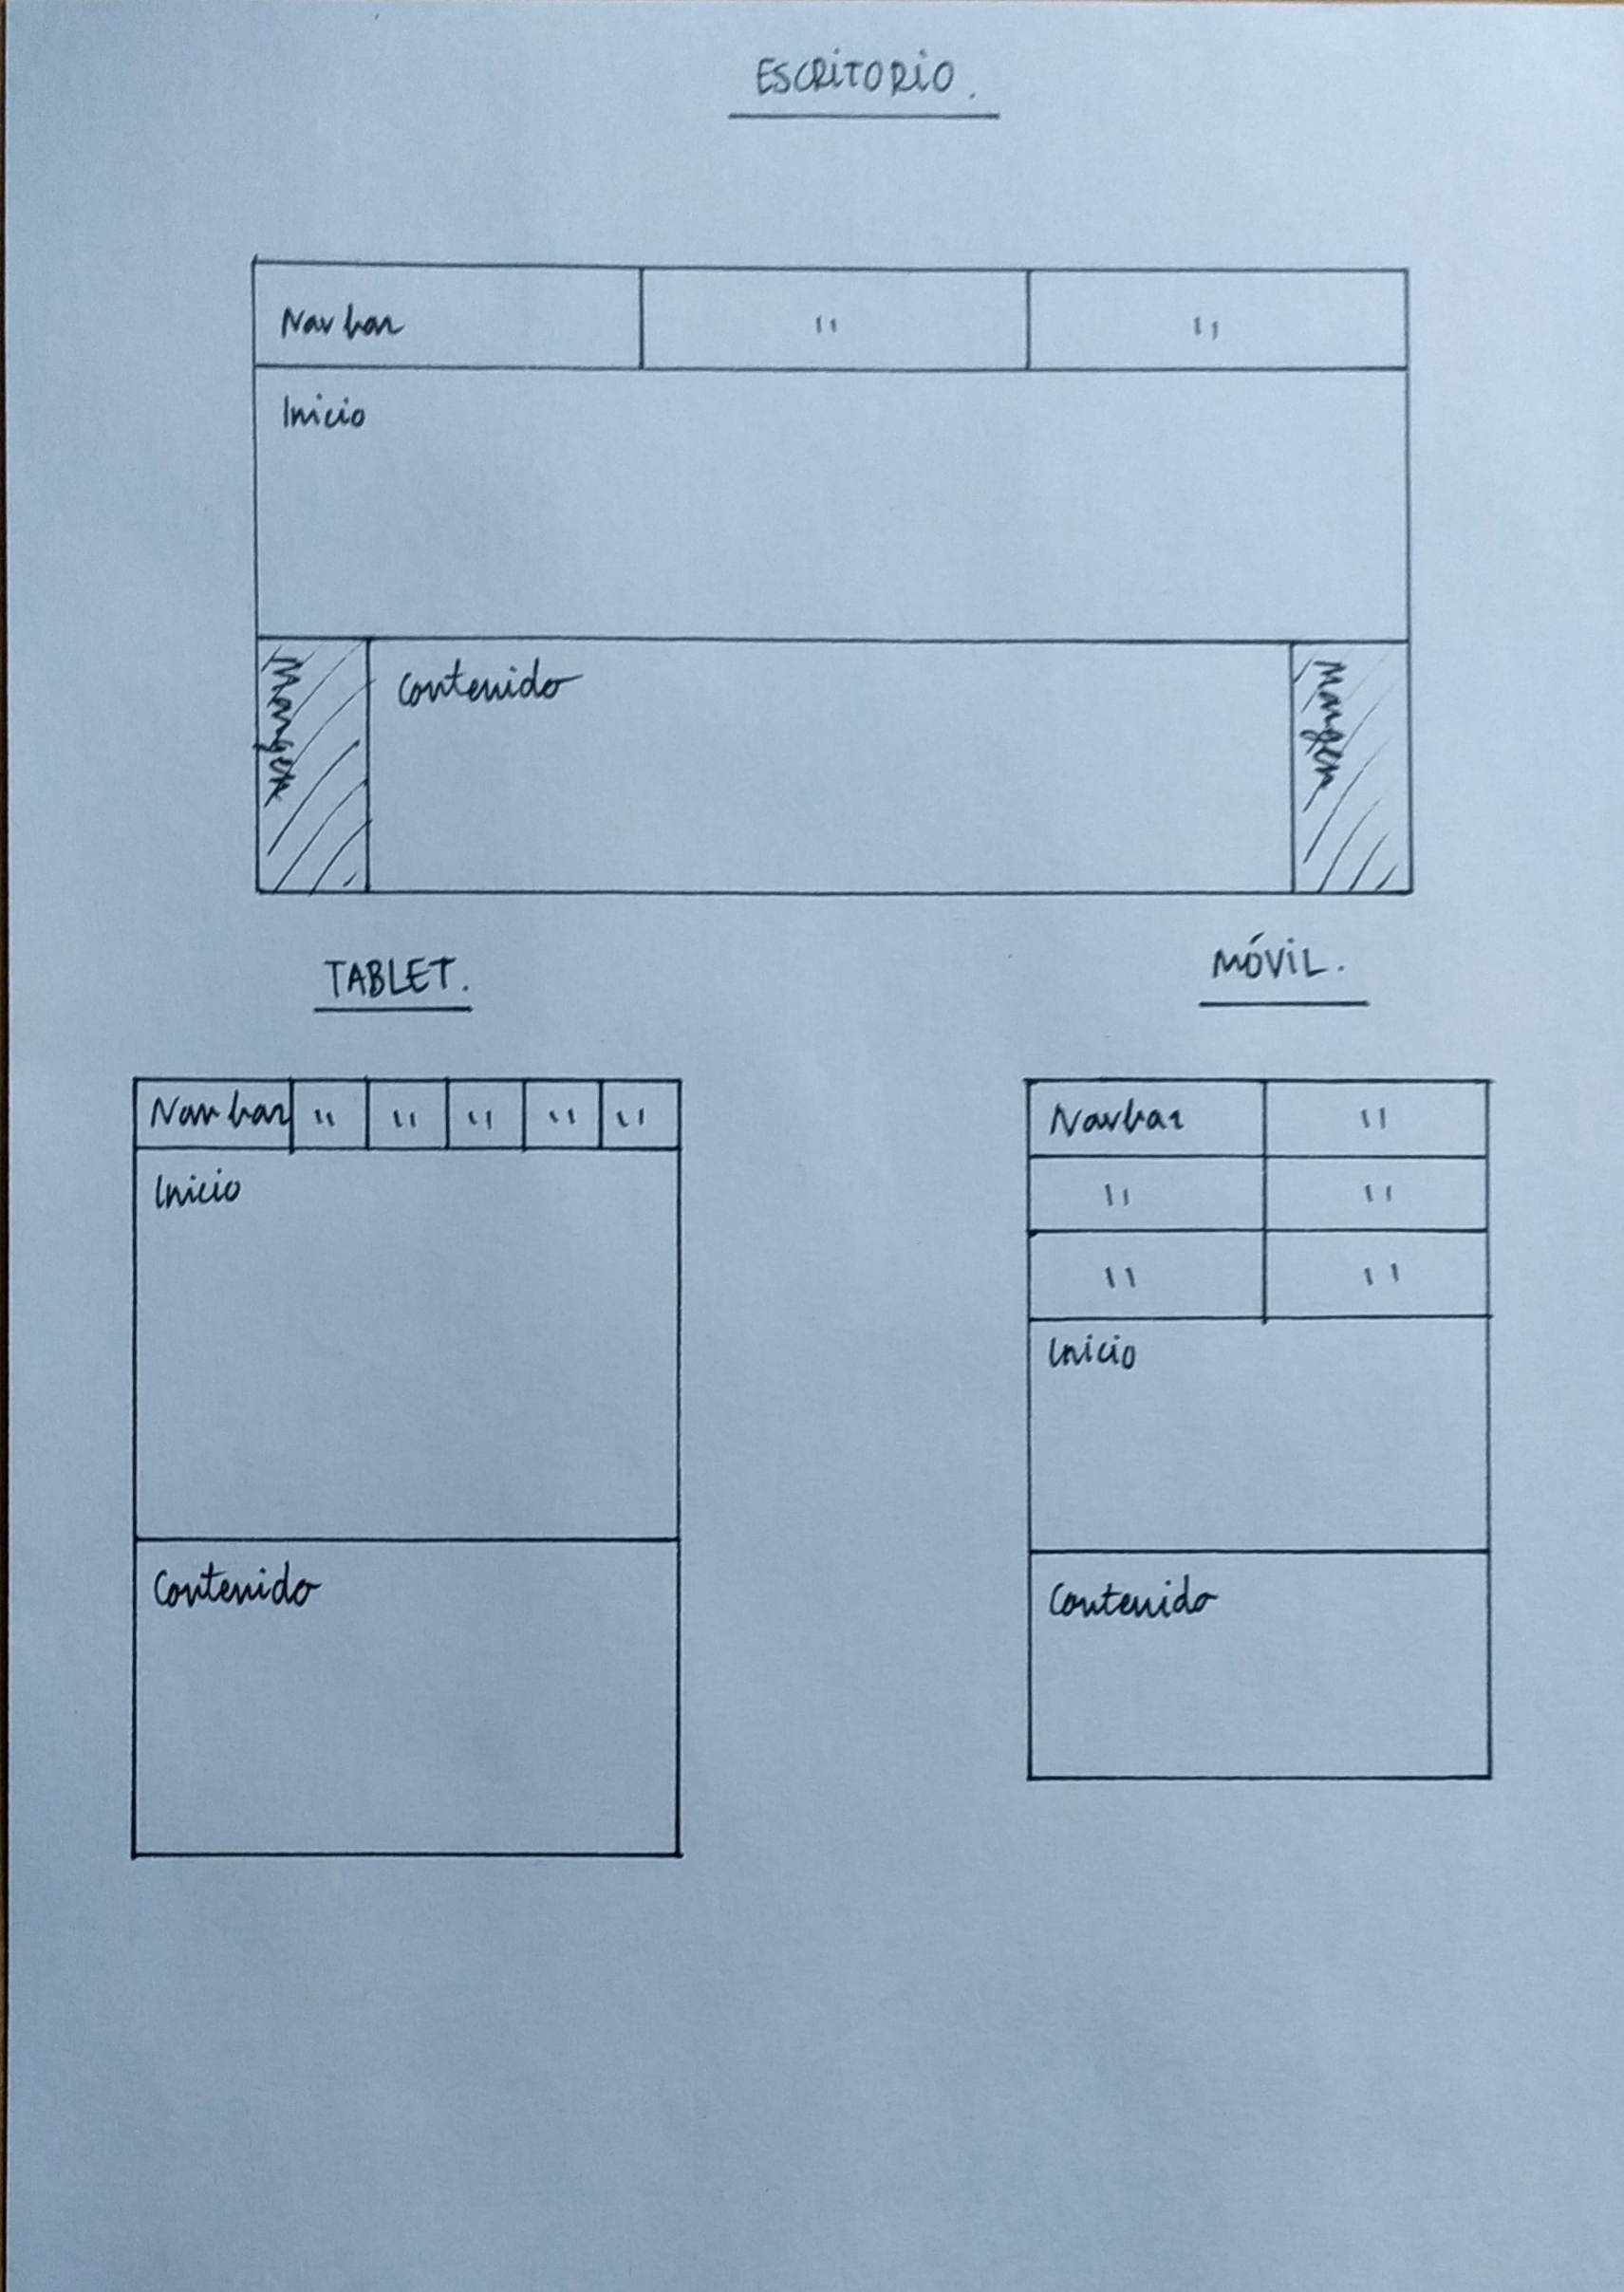 ESCRITORIO.
Navbar " "
Inicio
Margen Contenido Margen
TABLET.
Navbar " " " " "
Inicio
Contenido
MÓVIL.
Navbar "
" "
" "
Inicio
Contenido